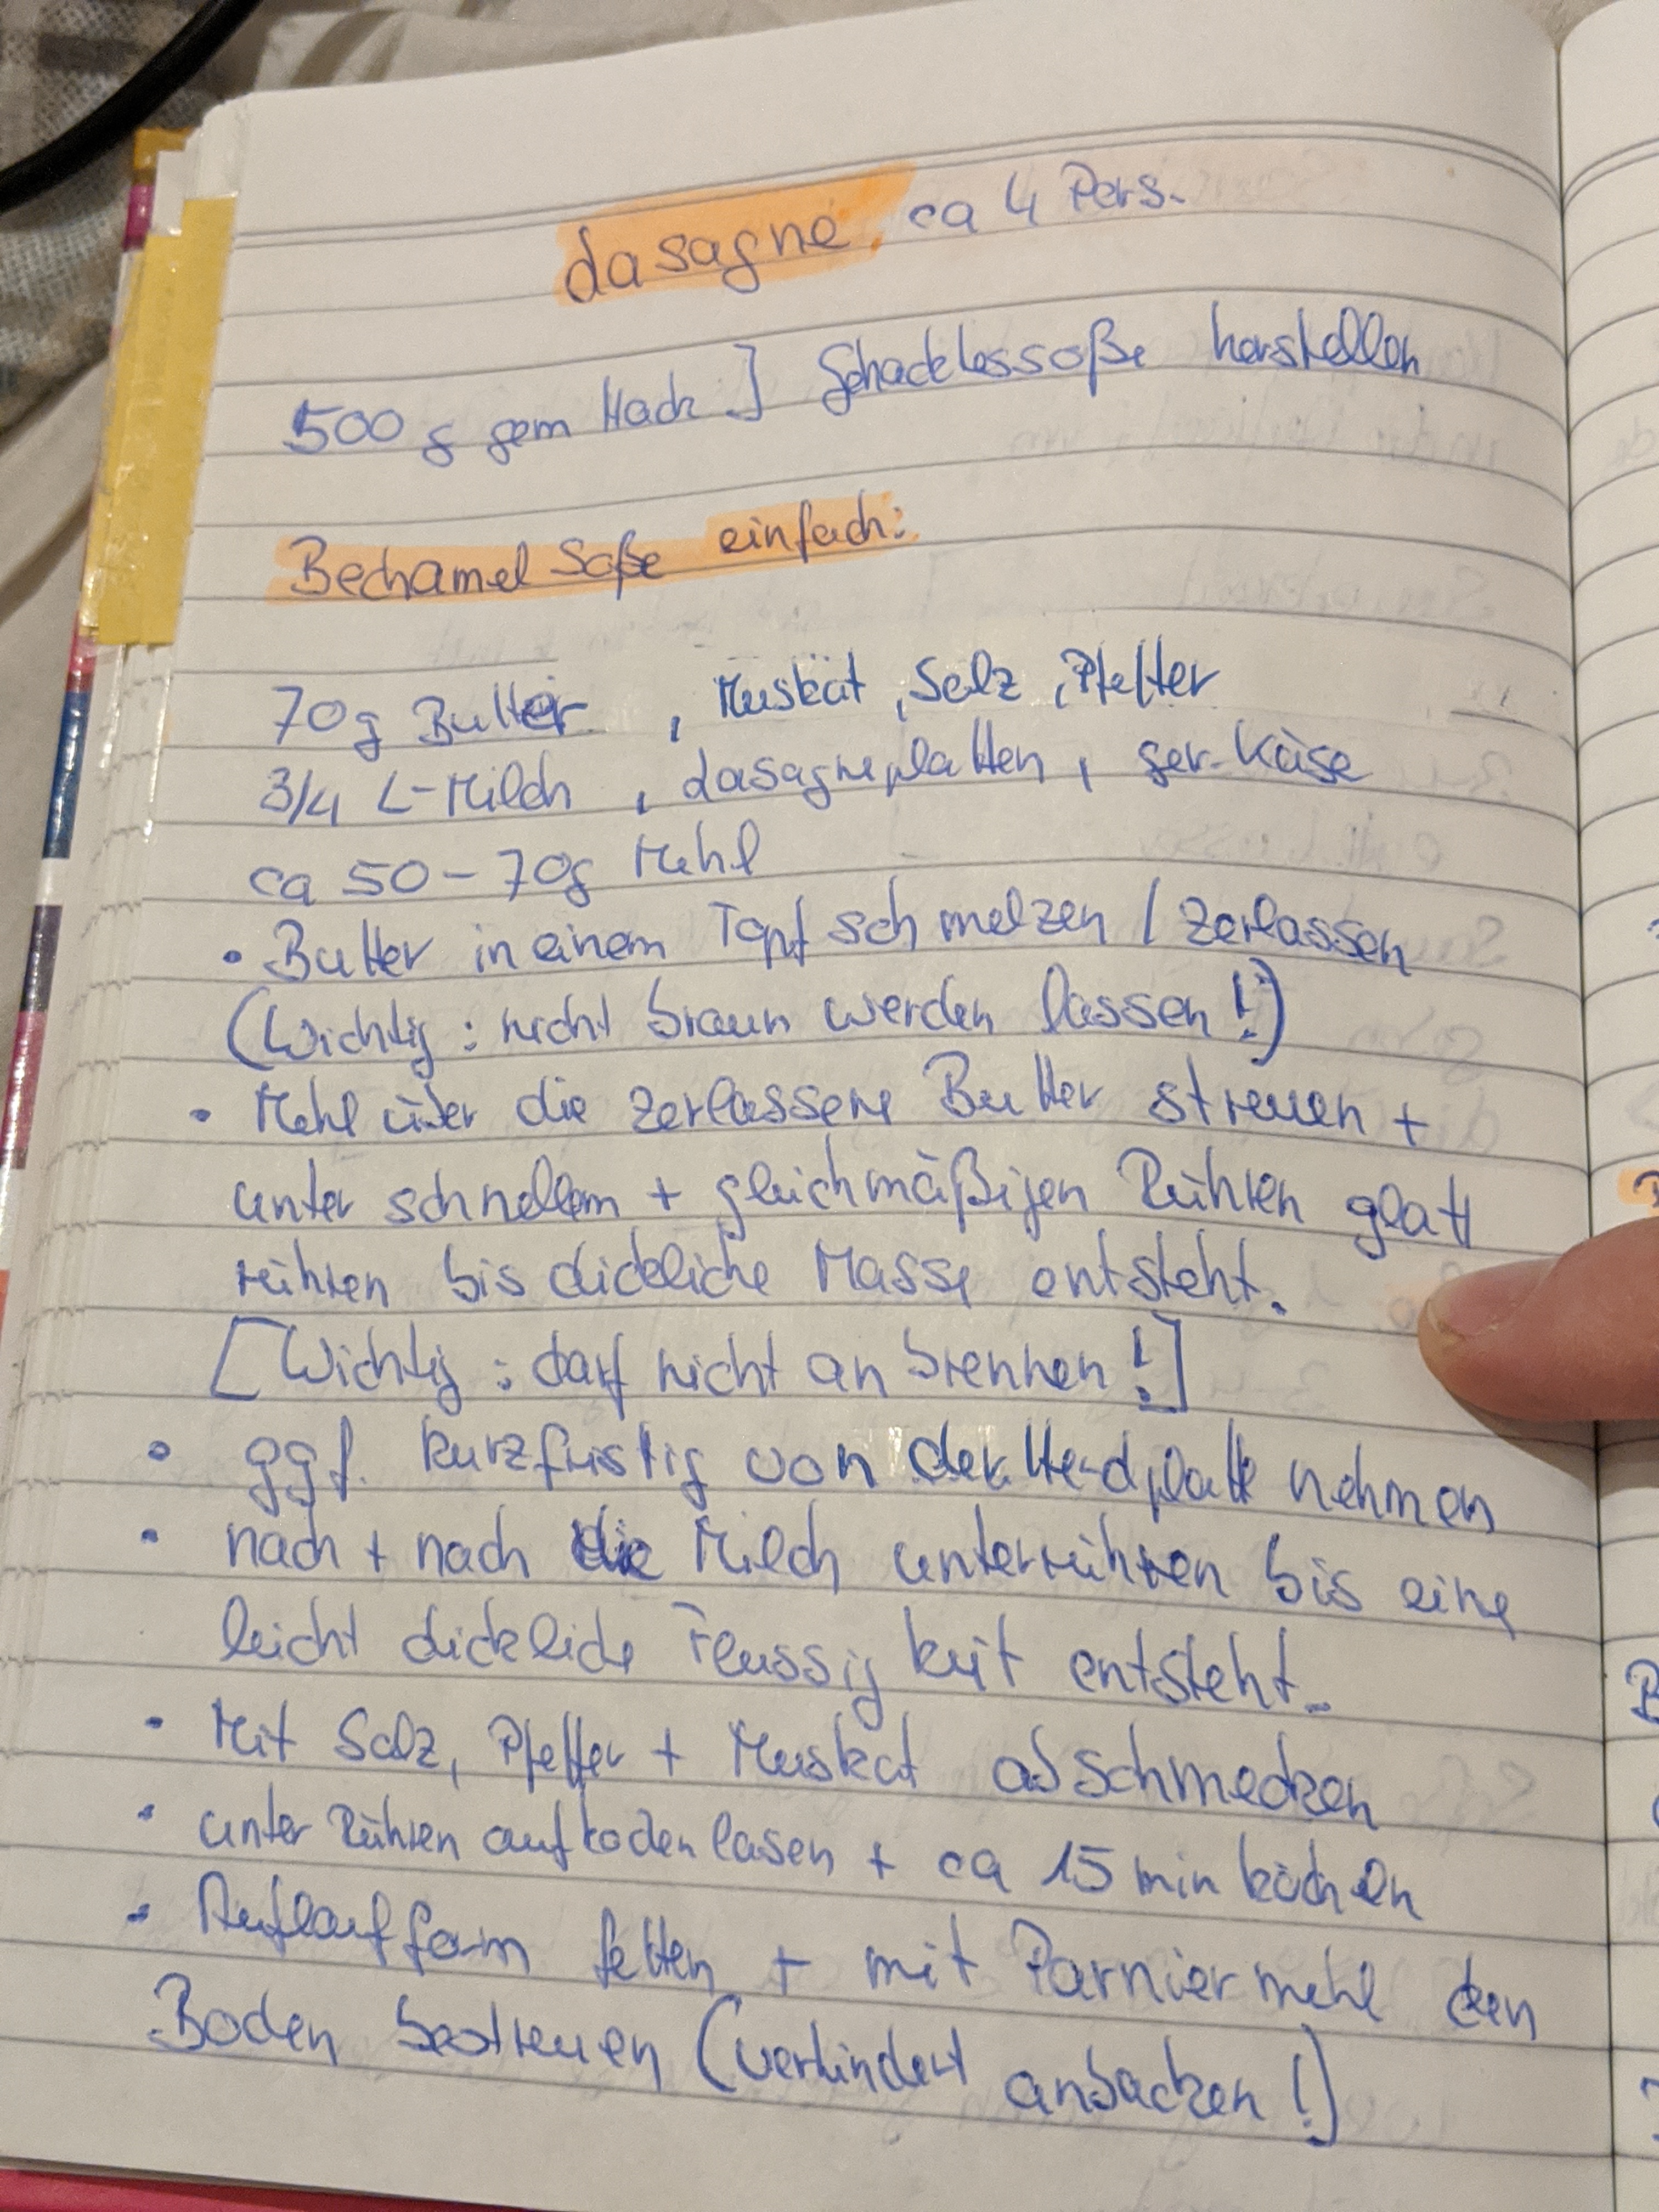 Lasagne, ca 4 Pers.
500 g gem Hack] Gehacktessoße herstellen
Bechamel Soße einfach:
70g Butter , Muskat, Salz, Pfeffer
3/4 L-Milch , Lasagneplatten, ger. Käse
ca 50-70g Mehl
• Butter in einem Topf schmelzen / zerlassen
(Wichtig: nicht braun werden lassen!)
• Mehl über die zerlassene Butter streuen +
unter schnellem + gleichmäßigen Rühren glatt
rühren bis dickliche Masse entsteht.
[Wichtig: darf nicht anbrennen!]
• ggf. kurzfristig von der Herdplatte nehmen
• nach + nach die Milch unterrühren bis eine
leicht dickliche Flüssigkeit entsteht.
• Mit Salz, Pfeffer + Muskat abschmecken
• unter Rühren aufkochen lasen + ca 15 min köcheln
• Auflaufform fetten + mit Parniermehl den
Boden bestreuen (verhindert anbacken!)